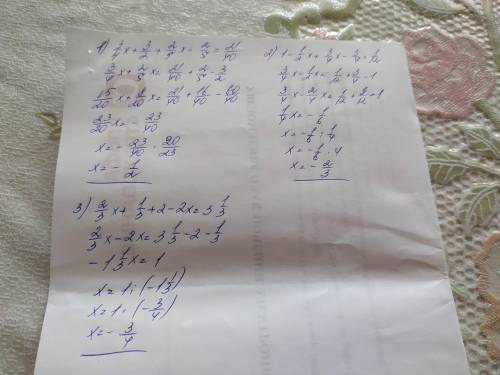 1) 3/4 x + 3/2 + 2/5 x - 2/5 = 21/40
3/4 x + 2/5 x = 21/40 + 2/5 - 3/2
15/20 x + 8/20 x = 21/40 + 16/40 - 60/40
23/20 x = - 23/40
x = - 23/40 · 20/23
x = - 1/2
2) 1 - 1/2 x + 3/4 x - 3/4 = 1/12
3/4 x - 1/2 x = 1/12 + 3/4 - 1
3/4 x - 2/4 x = 1/12 + 9/12 - 1
1/4 x = - 1/6
x = - 1/6 : 1/4
x = - 1/6 · 4
x = - 2/3
3) 2/3 x + 1/3 + 2 - 2x = 3 1/3
2/3 x - 2x = 3 1/3 - 2 - 1/3
- 1 1/3 x = 1
x = 1 : (-1 1/3)
x = 1 · (- 3/4)
x = - 3/4